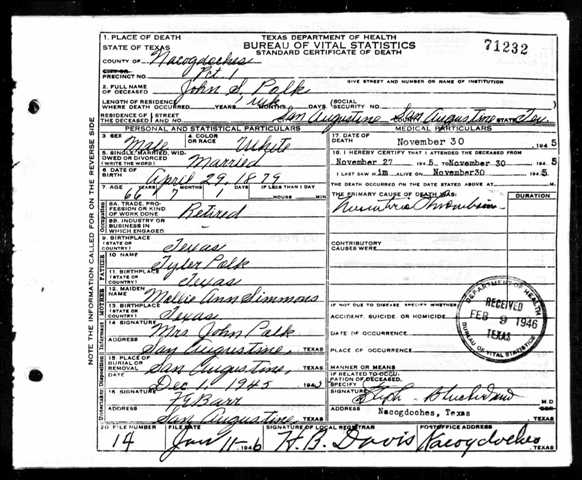 TEXAS DEPARTMENT OF HEALTH
BUREAU OF VITAL STATISTICS
STANDARD CERTIFICATE OF DEATH
71232
1. PLACE OF DEATH
STATE OF TEXAS
COUNTY OF Nacogdoches
CITY OR
PRECINCT NO. Pct. 1
GIVE STREET AND NUMBER OR NAME OF INSTITUTION
2. FULL NAME OF DECEASED John S. Polk
LENGTH OF RESIDENCE WHERE DEATH OCCURRED YEARS MONTHS DAYS
(SOCIAL SECURITY NO.
RESIDENCE OF THE DECEASED STREET AND NO. San Augustine San Augustine STATE Tex.
PERSONAL AND STATISTICAL PARTICULARS
3. SEX Male
4. COLOR OR RACE White
5. SINGLE, MARRIED, WIDOWED OR DIVORCED (WRITE THE WORD) Married
6. DATE OF BIRTH April 29, 1879
7. AGE YEARS MONTHS DAYS IF LESS THAN 1 DAY
66 7 1 HOURS MIN
8A. TRADE, PROFESSION OR KIND OF WORK DONE Retired
8B. INDUSTRY OR BUSINESS IN WHICH ENGAGED
9. BIRTHPLACE (STATE OR COUNTRY) Texas
10 NAME Tyler Polk
11. BIRTHPLACE (STATE OR COUNTRY) Texas
12. MAIDEN NAME Mollie Ann Simmons
13. BIRTHPLACE (STATE OR COUNTRY) Texas
14 SIGNATURE Mrs John Polk
ADDRESS San Augustine, TEXAS
15. PLACE OF BURIAL OR REMOVAL San Augustine, TEXAS
DATE Dec 1, 1945 194
16 SIGNATURE
ADDRESS San Augustine, TEXAS
MEDICAL PARTICULARS
17. DATE OF DEATH November 30 194 5
18. I HEREBY CERTIFY THAT I ATTENDED THE DECEASED FROM
November 27 194 5 TO November 30 194 5
I LAST SAW H im ALIVE ON November 30 194 5
THE DEATH OCCURRED ON THE DATE STATED ABOVE AT M.
THE PRIMARY CAUSE OF DEATH WAS: DURATION
CONTRIBUTORY CAUSES WERE:
IF NOT DUE TO DISEASE, SPECIFY WHETHER:
ACCIDENT, SUICIDE OR HOMICIDE
DATE OF OCCURRENCE
PLACE OF OCCURRENCE
MANNER OR MEANS
IF RELATED TO OCCUPATION OF DECEASED, SPECIFY
SIGNATURE M D
ADDRESS Nacogdoches, Texas TEXAS
DEPARTMENT OF HEALTH
RECEIVED
FEB 9 1946
TEXAS
BUREAU OF VITAL STATISTICS
20 FILE NUMBER FILE DATE SIGNATURE OF LOCAL REGISTRAR POSTOFFICE ADDRESS
14 Jan 11 - 194 6 H. B. Davis Nacogdoches TEXAS
NOTE THE INFORMATION CALLED FOR ON THE REVERSE SIDE